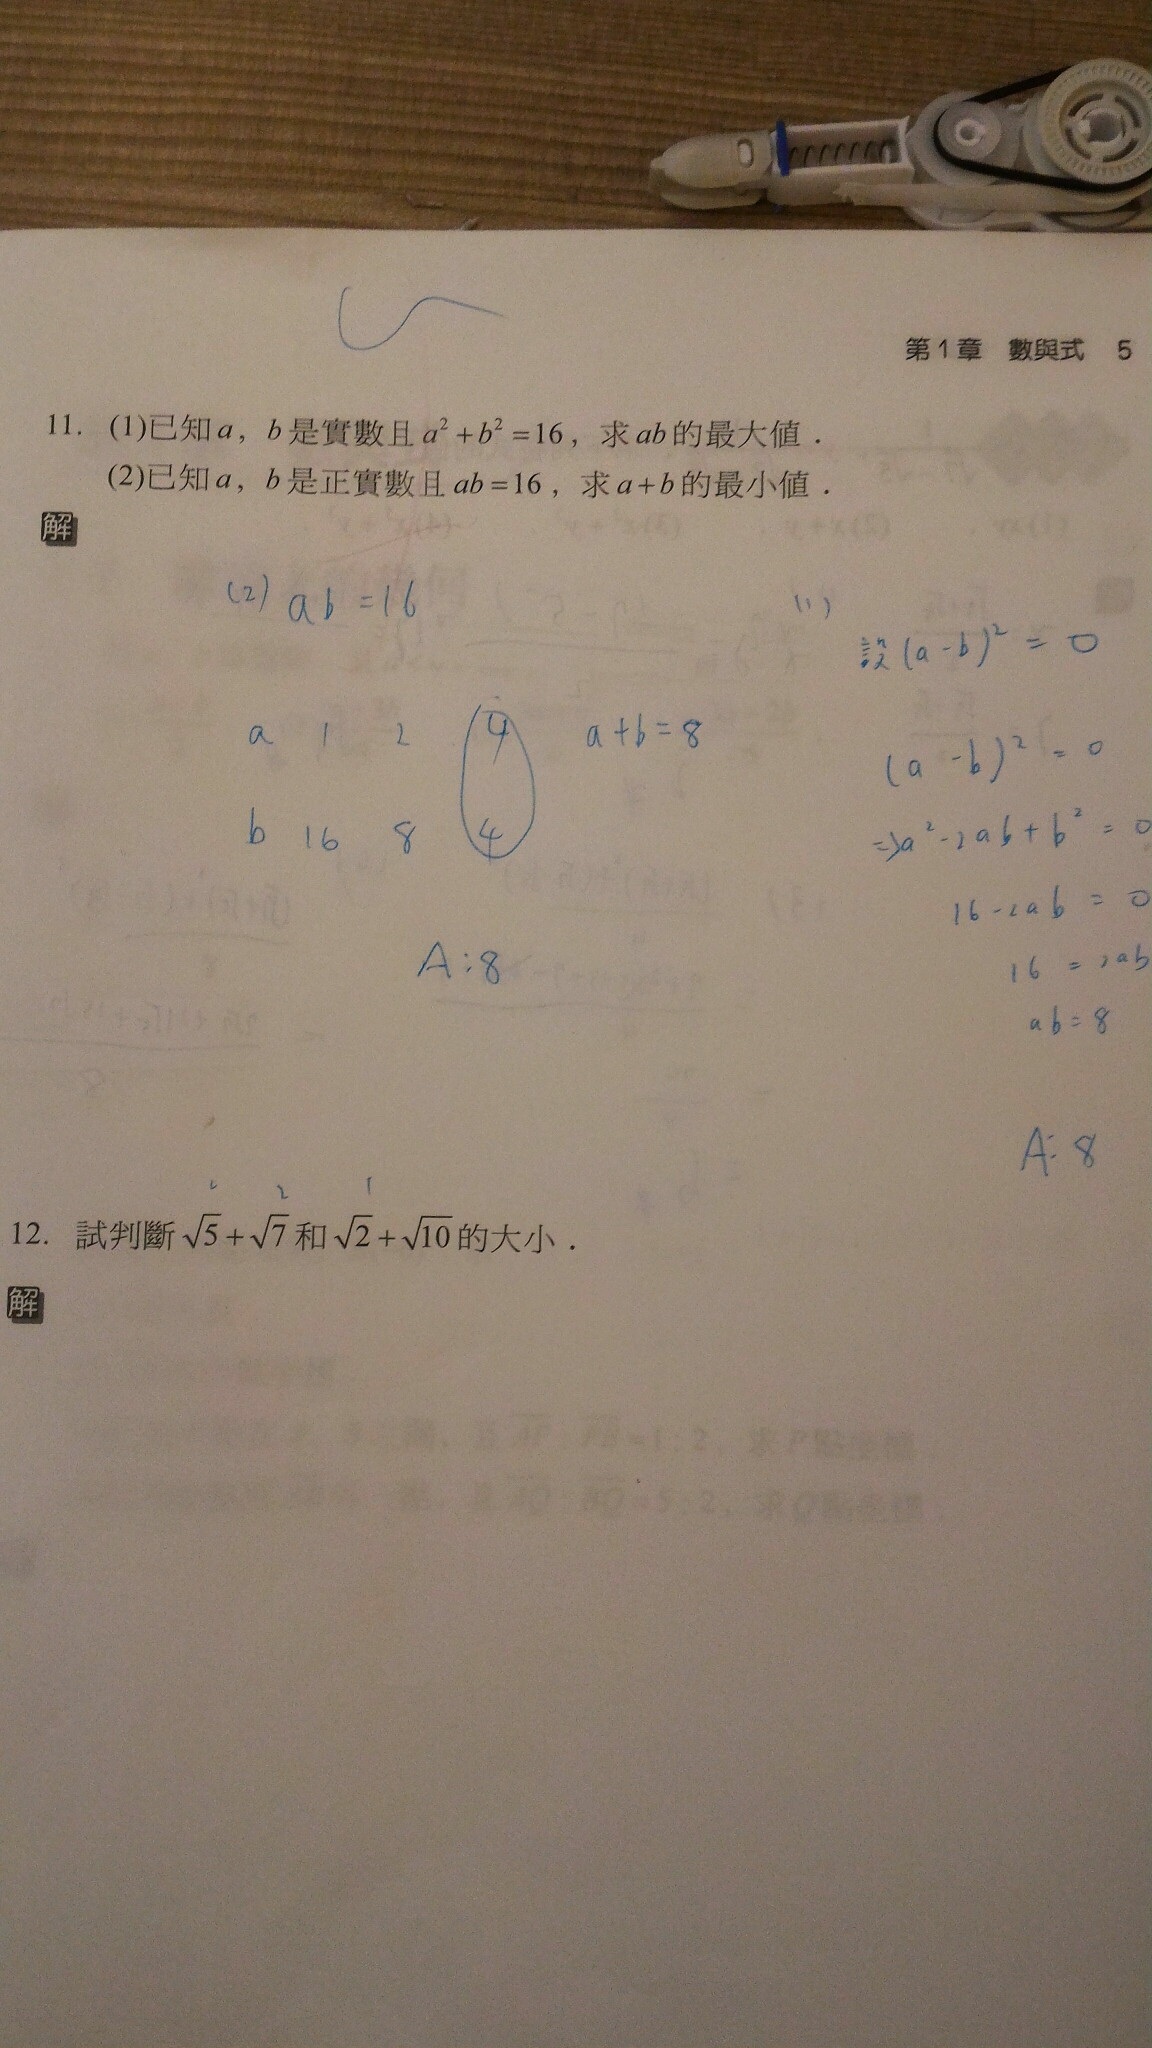 第1章 數與式 5
11. (1)已知a，b是實數且a²+b²=16，求ab的最大值．
(2)已知a，b是正實數且ab=16，求a+b的最小值．
解
(2) ab=16
a 1 2 4 a+b=8
b 16 8 4
A:8
(1)
設(a-b)²=0
(a-b)²=0
⇒a²-2ab+b²=0
16-2ab=0
16=2ab
ab=8
A:8
2 1
12. 試判斷√5+√7和√2+√10的大小．
解